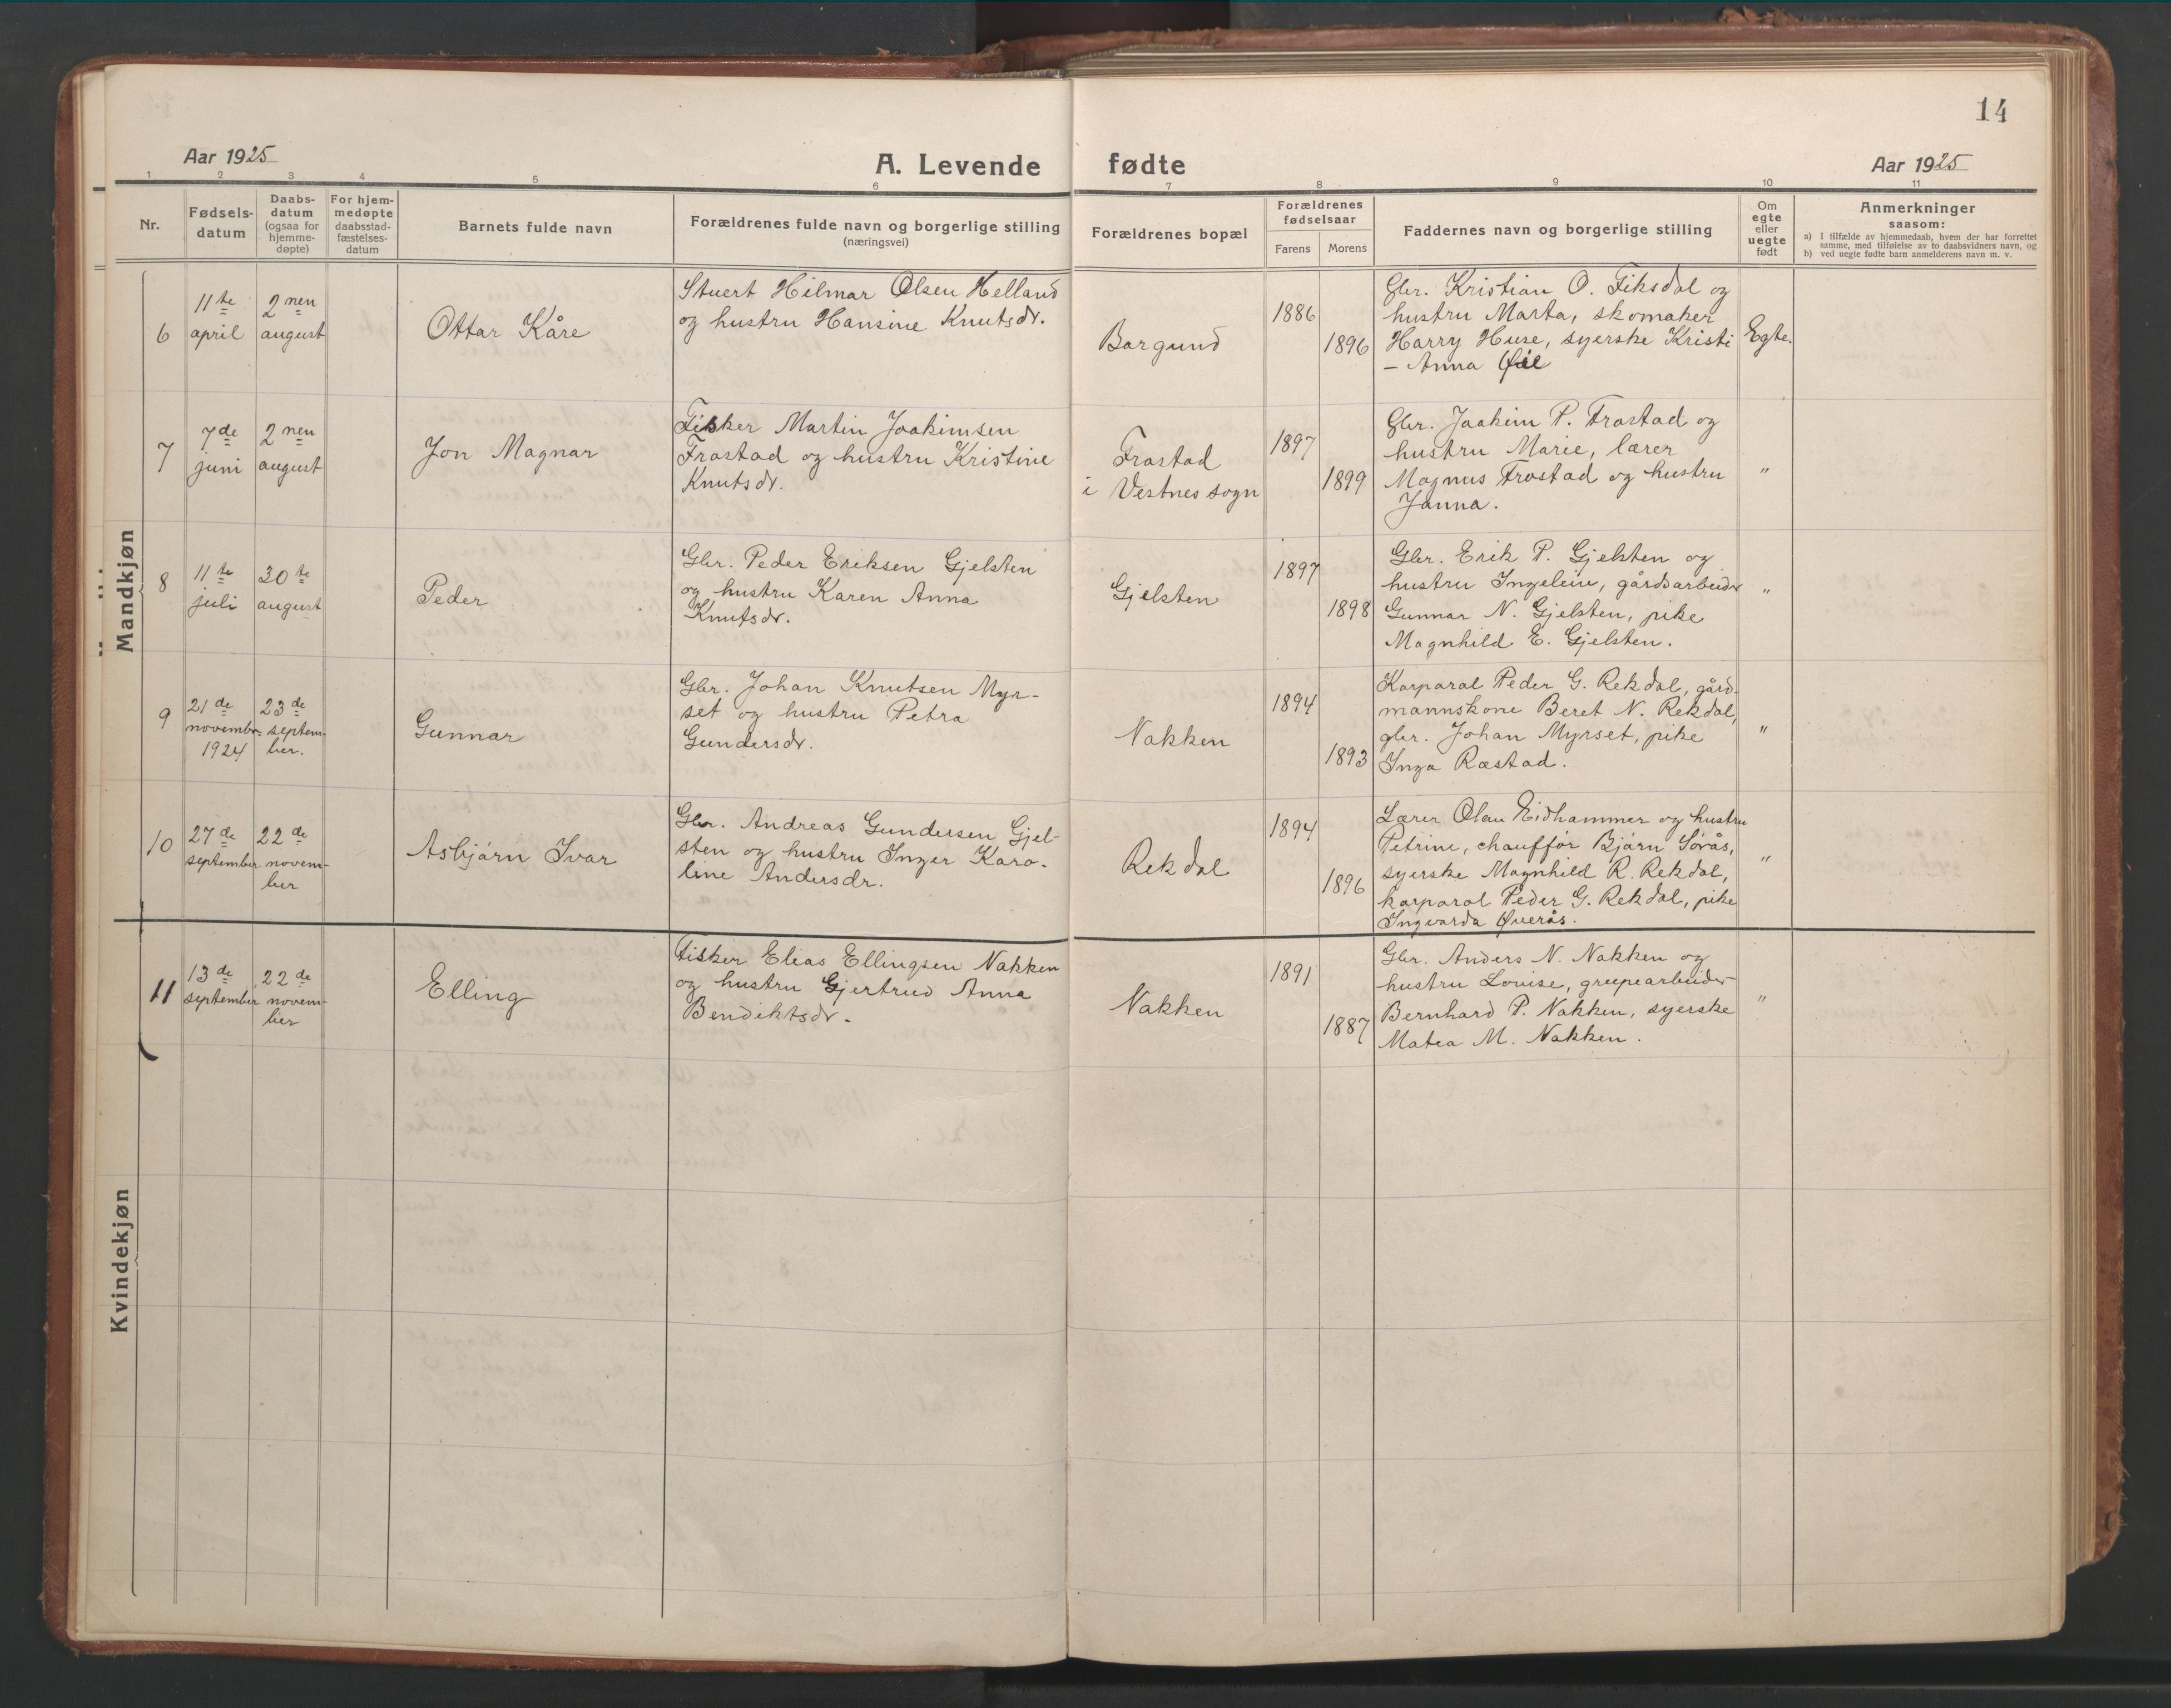 14
Aar 1925
A. Levende fødte
Aar 1925
1 2 3 4 5 6 7 8 9 10 11
Nr.
Fødsels-
datum
Daabs-
datum
(ogsaa for
hjemme-
døpte)
For hjem-
medøpte
daabsstad-
fæstelses-
datum
Barnets fulde navn
Forældrenes fulde navn og borgerlige stilling
(næringsvei)
Forældrenes bopæl
Forældrenes
fødselsaar
Farens Morens
Faddernes navn og borgerlige stilling
Om
egte
eller
uegte
født
Anmerkninger
saasom:
a) I tilfælde av hjemmedaab, hvem der har forrettet
samme, med tilføielse av to daabsvidners navn, og
b) ved uegte fødte barn anmelderens navn m. v.
Mandkjøn
6
11te
april
2nen
august
Ottar Kåre
Stuert Hilmar Olsen Helland
og hustru Hansine Knutsdr.
Borgund
1886
1896
Gbr. Kristian O. Fiksdal og
hustru Marta, skomaker
Harry Huse, syerske Kristi
- Anna
Egte.
7
7de
juni
2nen
august
Jon Magnar
Fisker Martin Joakimsen
Frostad og hustru Kristine
Knutsdr.
Frostad
i Vestnes sogn
1897
1899
Gbr. Joakim P. Frostad og
hustru Marie, lærer
Magnus Frostad og hustru
Janna.
"
8
11te
juli
30te
august
Peder
Gbr. Peder Eriksen Gjelsten
og hustru Karen Anna
Knutsdr.
Gjelsten
1897
1898
Gbr. Erik P. Gjelsten og
hustru Ingeleiv, gårdsarbeider
Gunnar N. Gjelsten, pike
Magnhild E. Gjelsten.
"
9
21de
novembr.
1924
23de
septem-
ber.
Gunnar
Gbr. Johan Knutsen Myr-
set og hustru Petra
Gundersdr.
Nakken
1894
1893
Korporal Peder G. Rekdal, gård-
mannskone Beret N. Rekdal,
gbr. Johan Myrset, pike
Inga Rastad.
"
10
27de
september
22de
novem-
ber
Asbjørn Ivar
Gbr. Andreas Gundersen Gjel-
sten og hustru Inger Karo-
line Andersdr.
Rekdal
1894
1896
Lærer Olav Eidhammer og hustru
Petrine, chauffør Bjørn Sørås,
syerske Magnhild R. Rekdal,
korporal Peder G. Rekdal, pike
Ingvarda Øverås.
"
11
13de
september
22de
novem-
ber
Elling
Fisker Elias Ellingsen Nakken
og hustru Gjertrud Anna
Bendiktsdr.
Nakken
1891
1887
Gbr. Anders N. Nakken og
hustru Lovise, grupearbeider
Bernhard P. Nakken, syerske
Matea M. Nakken.
"
Kvindekjøn